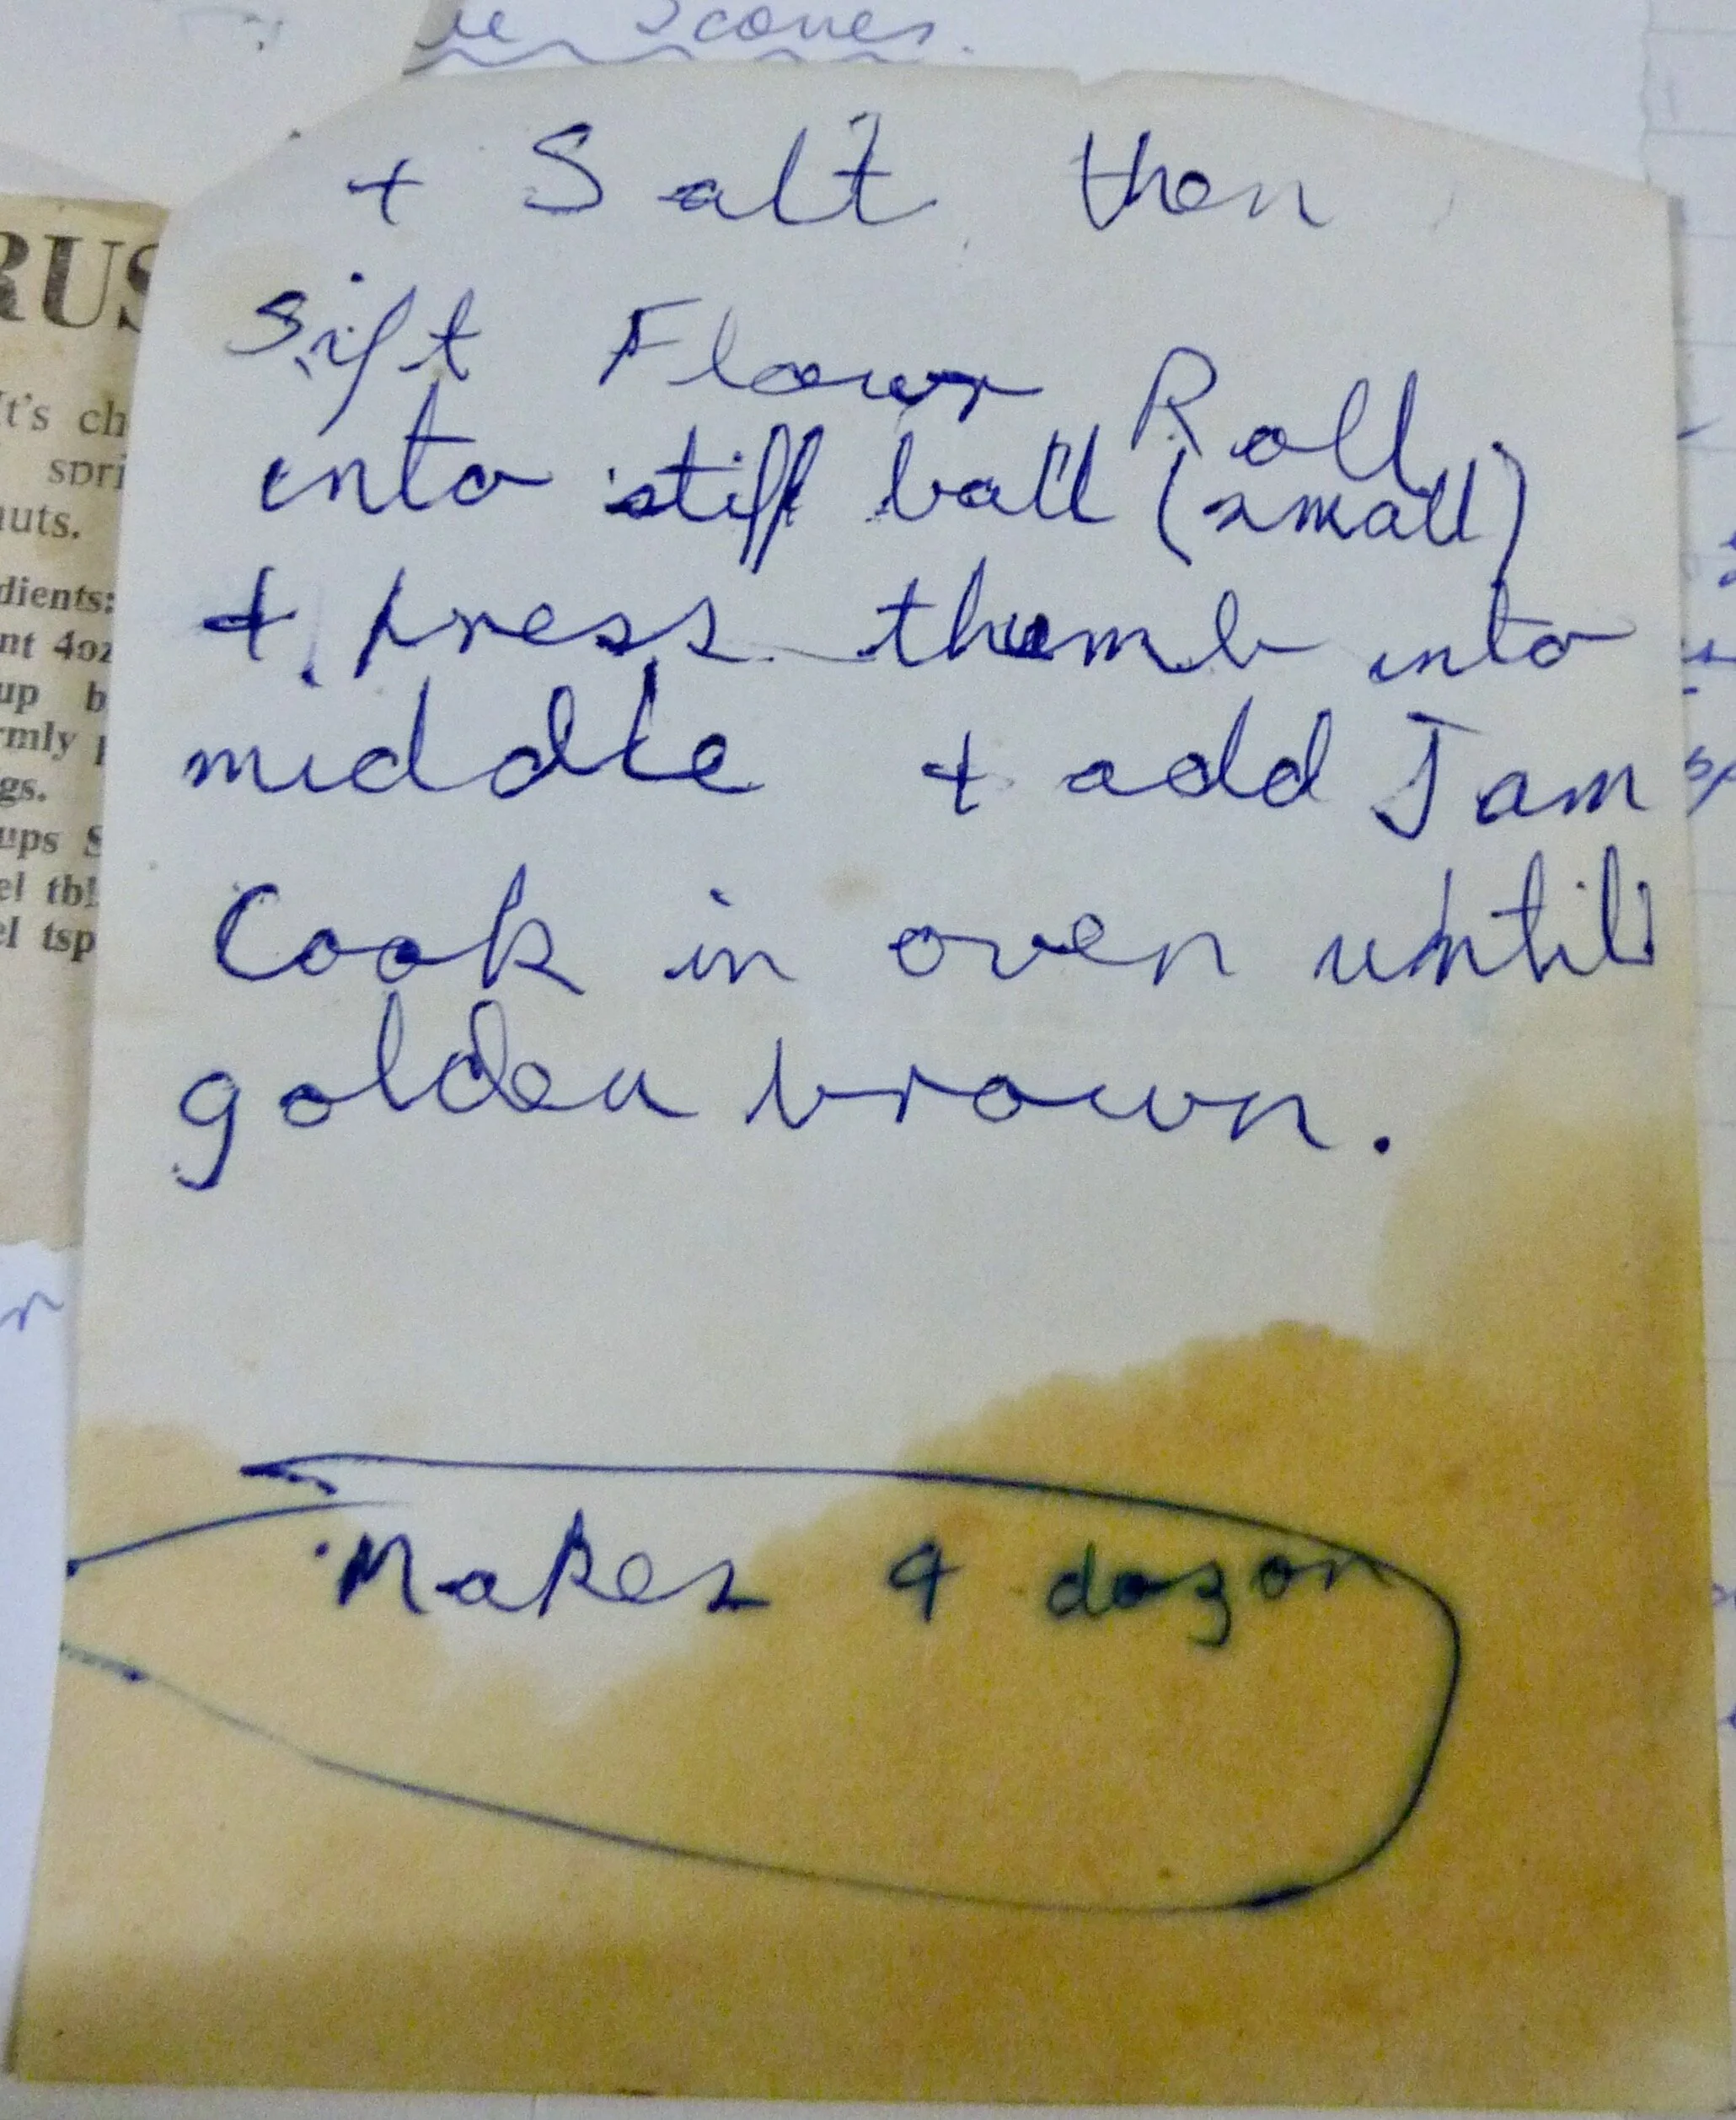 Scones.
+ Salt then
Sift Flour Roll
into stiff ball (small)
+ press thumb into
middle + add Jam
Cook in oven until
golden brown.
Makes 4 dozen
RUS
It's ch
spri
nuts.
dients:
nt 4oz
up b
rmly p
gs.
ups S
el tbl
el tsp